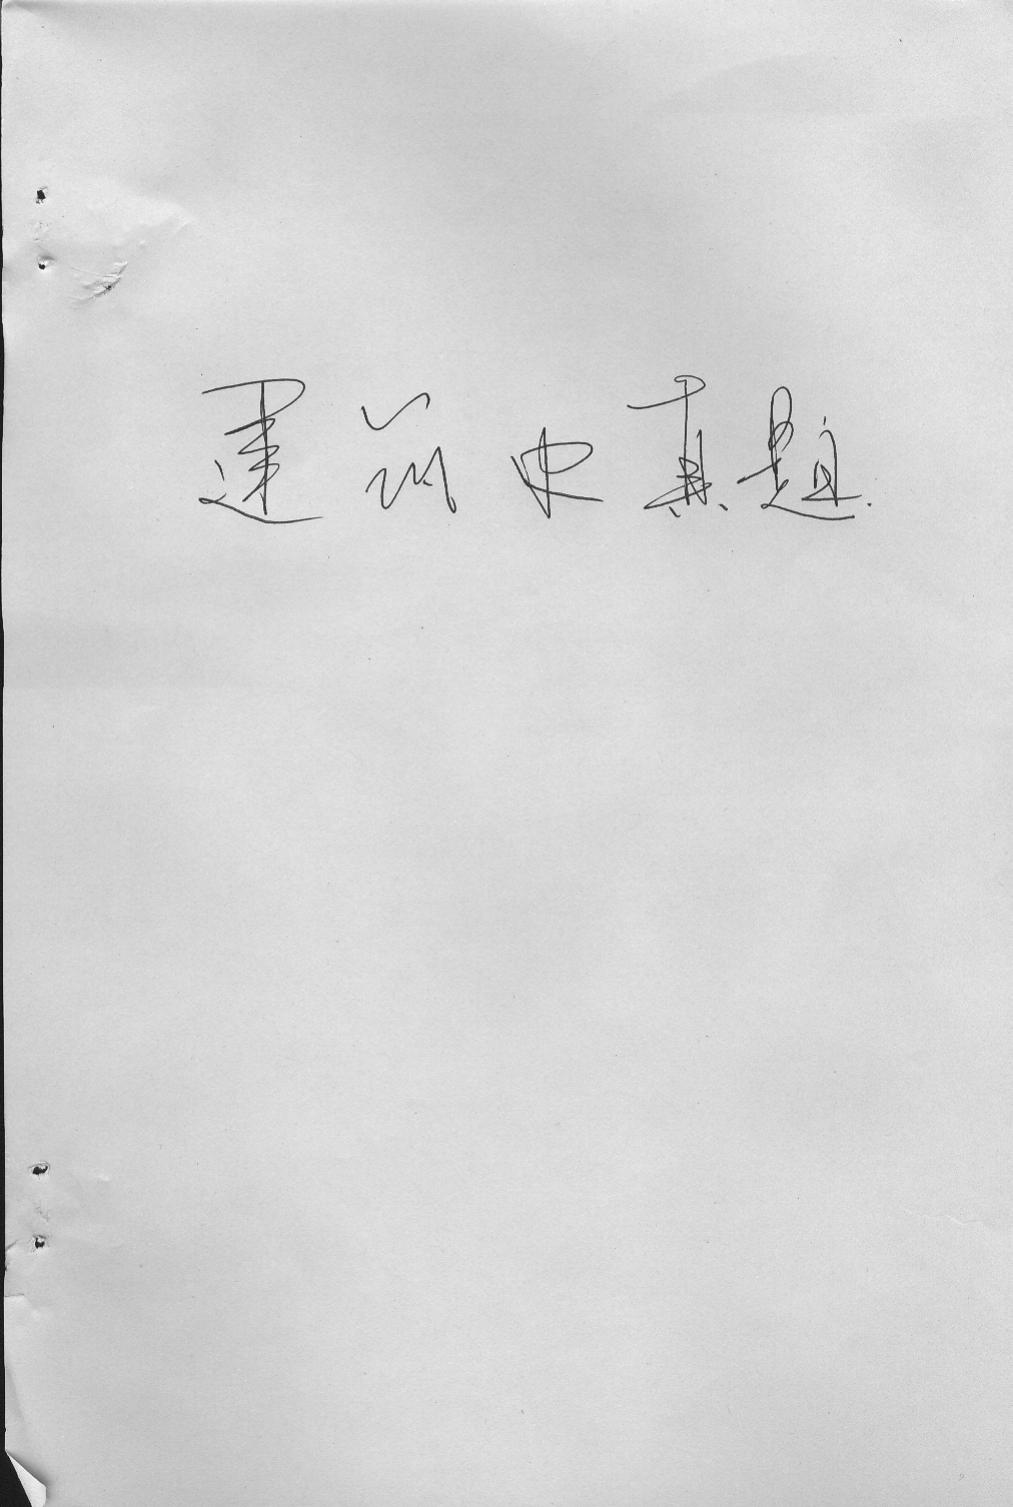 建筑史真题.